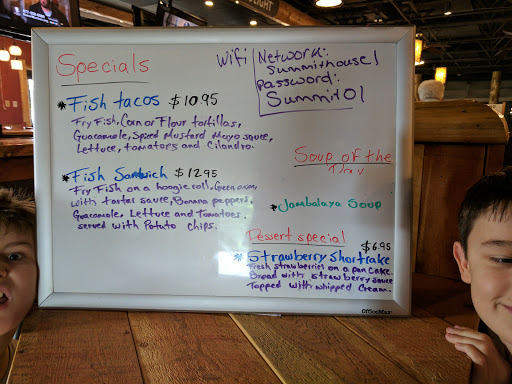 Specials
* Fish tacos $10.95
Fry Fish, Corn or Flour tortillas,
Guacamole, Spiced Mustard Mayo sauce,
Lettuce, tomatoes and Cilandro.
* Fish Sandwich $12.95
Fry Fish on a hoogie roll, Green onion,
with tartar sauce, Banana peppers,
Guacamole, Lettuce and Tomatoes.
served with Potato chips.
Wifi
Network:
Summithouse1
Password:
Summit01
Soup of the
Day
* Jambalaya Soup
Dessert special
$6.95
* Strawberry Shortcake
Fresh strawberries on a pan cake
Bread with strawberry sauce
Topped with whipped cream.
OfficeMax